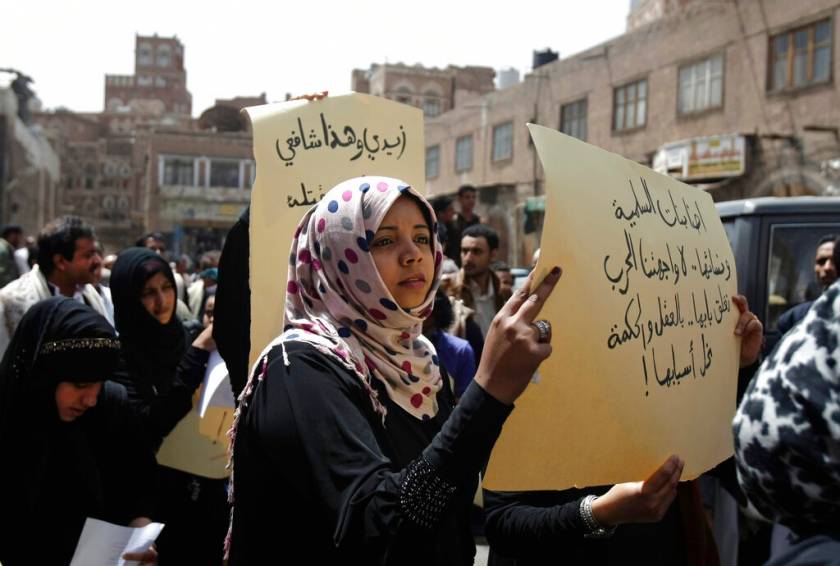 زيدي وهذا شافعي
السلمية
لا واجهتنا الحرب
نغلق بابها.. بالعقل والحكمة
نحل أسبابها!